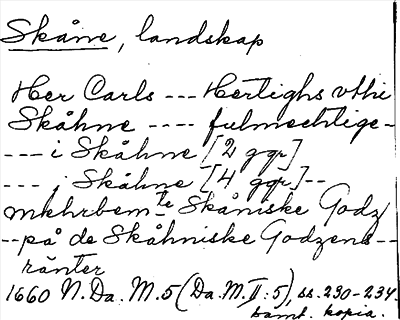 Skåne, landskap
Her Carls --- Hertighs vthi
Skåhne ---- fulmechtige-
--- i Skåhne [2 ggr]
--- j Skåhne [4 ggr]--
mehrbem:te Skåniske Godz
--på de Skåhniske Godzens--
ränter
1660 N. Da. M. 5 (Da. M. II: 5), ss. 230-234.
samt. kopia.